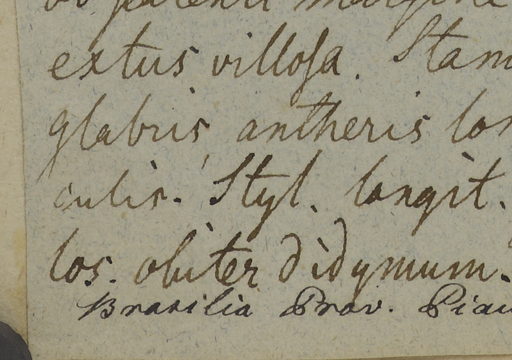 extus villosa. Stam
glabris, antheris lon
culis. Styl. longit.
los. obiter didymum.
Brasilia Prov. Piau